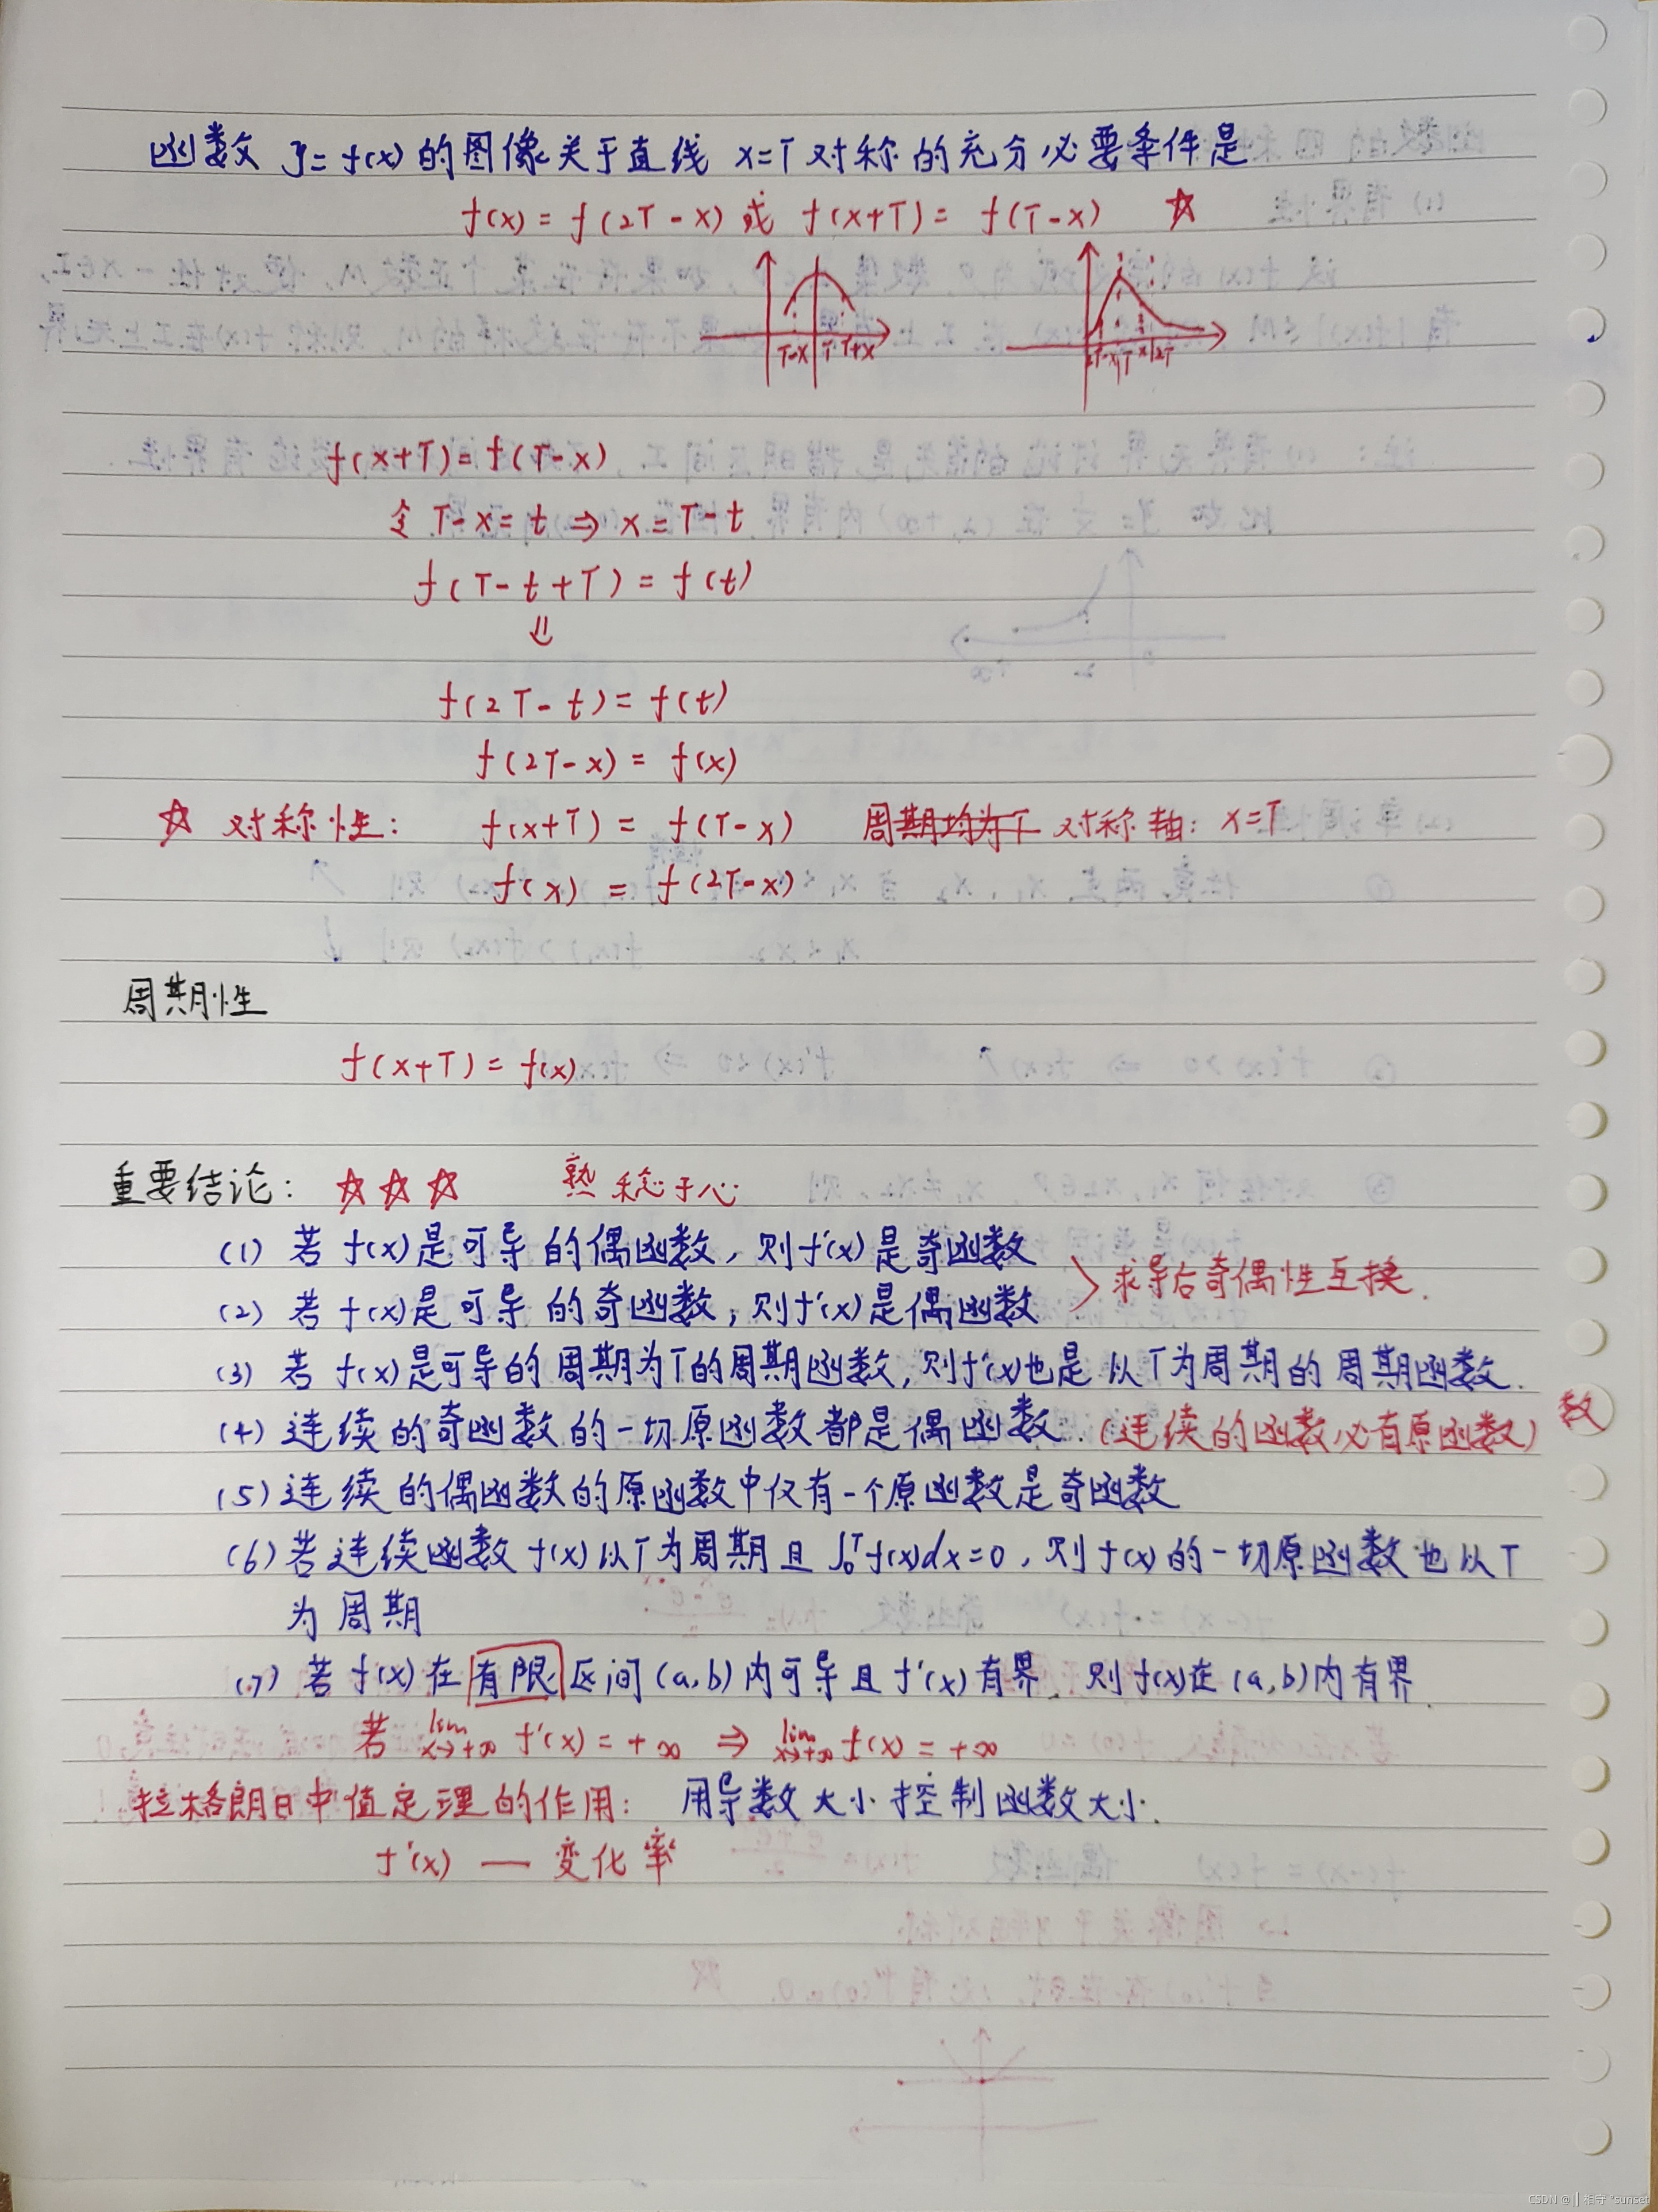 函数 y=f(x)的图像关于直线 x=T对称的充分必要条件是
f(x)=f(2T-x)或 f(x+T)=f(T-x) ☆
T-x T T+x
2T-x T x 2T
f(x+T)=f(T-x)
令 T-x=t ⇒ x=T-t
f(T-t+T)=f(t)
⇓
f(2T-t)=f(t)
f(2T-x)=f(x)
☆ 对称性: f(x+T)=f(T-x) 周期均为T 对称轴: x=T
f(x)=f(2T-x)
周期性
f(x+T)=f(x)
重要结论: ☆☆☆ 熟稔于心
(1) 若f(x)是可导的偶函数,则f'(x)是奇函数
求导后奇偶性互换.
(2) 若f(x)是可导的奇函数,则f'(x)是偶函数
(3) 若f(x)是可导的周期为T的周期函数,则f'(x)也是以T为周期的周期函数.
(4) 连续的奇函数的一切原函数都是偶函数.(连续的函数必有原函数) 数
(5) 连续的偶函数的原函数中仅有一个原函数是奇函数
(6) 若连续函数f(x)以T为周期且∫₀ᵀf(x)dx=0,则f(x)的一切原函数也以T
为周期
(7) 若f(x)在有限区间(a,b)内可导且f'(x)有界.则f(x)在(a,b)内有界.
若 lim x→+∞ f'(x)=+∞ ⇒ lim x→+∞ f(x)=+∞
拉格朗日中值定理的作用: 用导数大小控制函数大小.
f'(x) — 变化率
CSDN @||相守*sunset